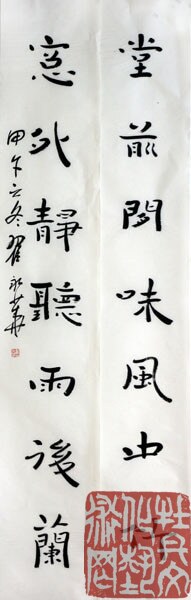 堂前閒味風中竹
窓外靜聽雨後蘭
甲午之冬翟永華